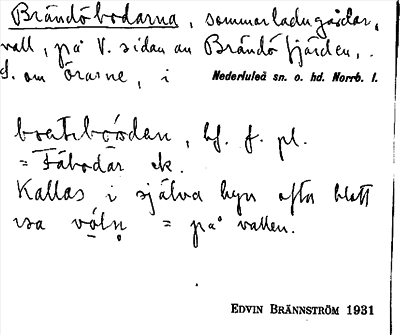 Brändöbodarna, sommarladugårdar,
vall, på V. sidan av Brändöfjärden,
S. om Örarne, i Nederluleå sn. o. hd. Norrb. l.
bf. f. pl.
= Fäbodar ek.
Kallas i själva byn ofta blott
= på vallen.
EDVIN BRÄNNSTRÖM 1931